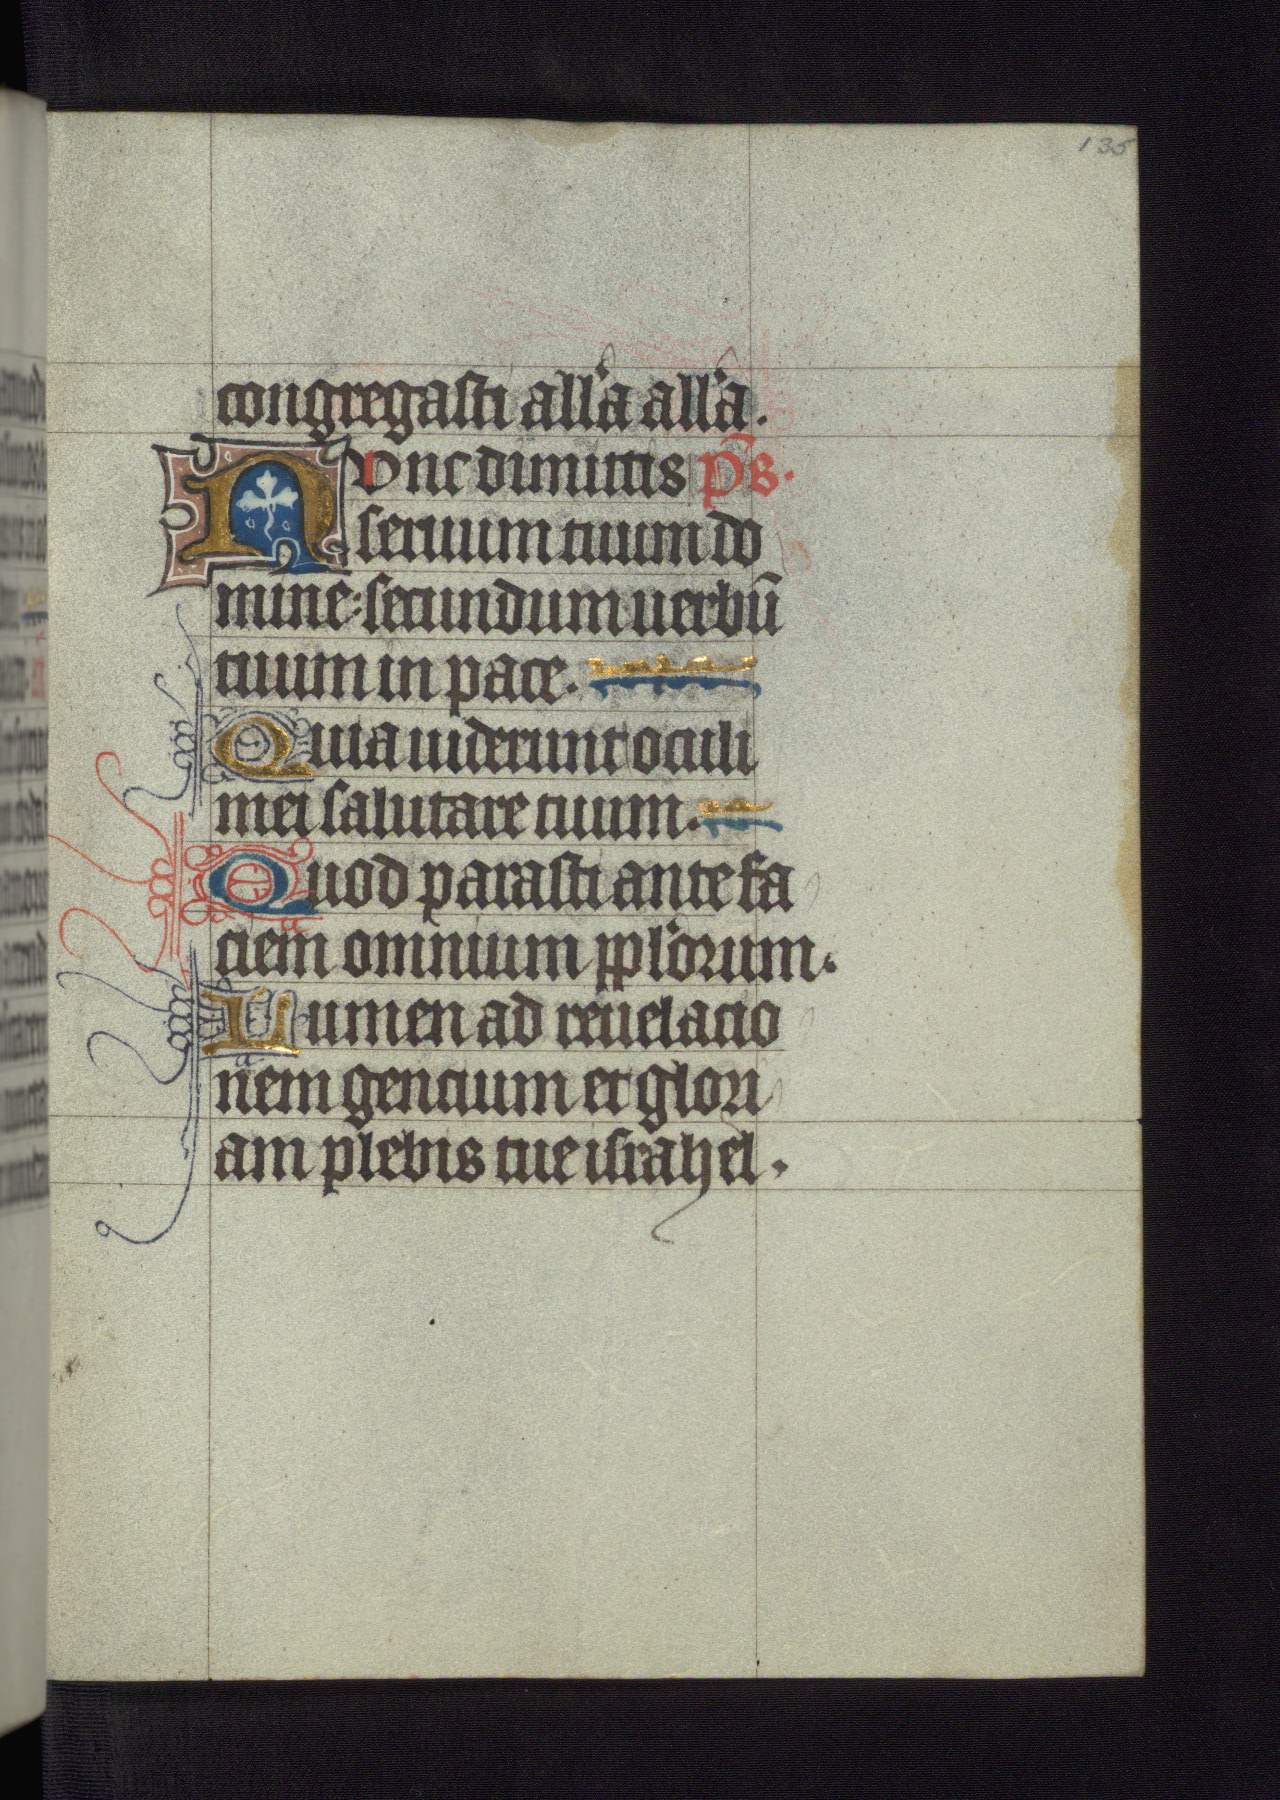 135
congregasti all'a all'a.
Nunc dimittis ps.
seruum tuum do
mine: secundum uerbū
tuum in pace.
Quia uiderunt oculi
mei salutare tuum.
Quod parasti ante fa
ciem omnium ppl'orum.
Lumen ad reuelacio
nem gencium et glori
am plebis tue israhel.